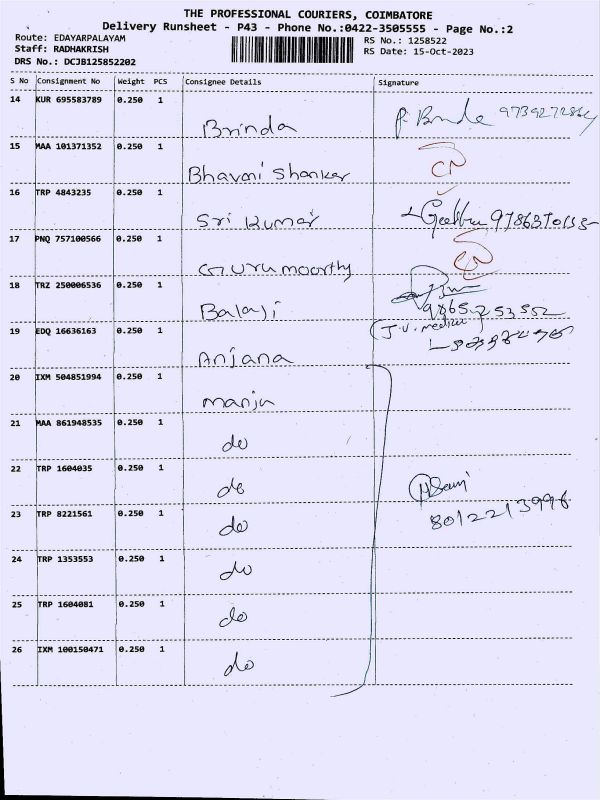 THE PROFESSIONAL COURIERS, COIMBATORE
Delivery Runsheet - P43 - Phone No.:0422-3505555 - Page No.:2
Route: EDAYARPALAYAM
RS No.: 1258522
Staff: RADHAKRISH
RS Date: 15-Oct-2023
DRS No.: DCJB125852202
S No Consignment No Weight PCS Consignee Details Signature
14 KUR 695583789 0.250 1
Brinda
15 MAA 101371352 0.250 1
Bhavani Shanker
16 TRP 4843235 0.250 1
Sri Kumar
17 PNQ 757100566 0.250 1
Gurumoorthy
18 TRZ 250006536 0.250 1
Balaji 9865253552
19 EDQ 16636163 0.250 1
Anjana
20 IXM 504851994 0.250 1
Manju
21 MAA 861948535 0.250 1
do
22 TRP 1604035 0.250 1
do
23 TRP 8221561 0.250 1
do 8012213996
24 TRP 1353553 0.250 1
do
25 TRP 1604081 0.250 1
do
26 IXM 100150471 0.250 1
do